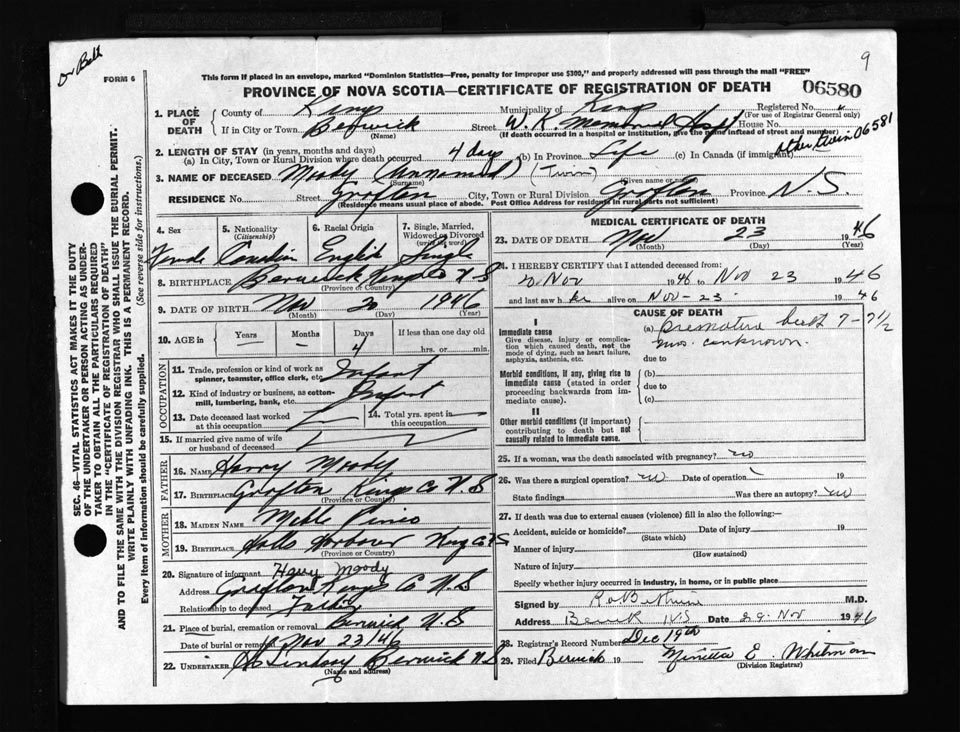 Dr Bell
9
FORM 6
This form if placed in an envelope, marked "Dominion Statistics—Free, penalty for improper use $300," and properly addressed will pass through the mail "FREE"
PROVINCE OF NOVA SCOTIA—CERTIFICATE OF REGISTRATION OF DEATH 06580
1. PLACE OF DEATH
County of Kings Municipality of Kings Registered No.
(For use of Registrar General only)
If in City or Town Berwick Street W. K. Memorial Hospt House No.
(Name) (If death occurred in a hospital or institution, give the name instead of street and number)
other twin 06581
2. LENGTH OF STAY (in years, months and days)
(a) In City, Town or Rural Division where death occurred 4 days (b) In Province Life (c) In Canada (if immigrant)
3. NAME OF DECEASED Moody (Unnamed) (Twin)
(Surname) Given name or names
RESIDENCE No. Street Grafton City, Town or Rural Division Grafton Province N.S.
(Residence means usual place of abode. Post Office Address for residents in rural parts not sufficient)
4. Sex 5. Nationality (Citizenship) 6. Racial Origin 7. Single, Married, Widowed or Divorced (write the word)
Female Canadian English Single
8. BIRTHPLACE Berwick Kings Co N S
(Province or Country)
9. DATE OF BIRTH Nov 20 1946
(Month) (Day) (Year)
10. AGE in Years Months Days If less than one day old
– 4 hrs. or min.
OCCUPATION
11. Trade, profession or kind of work as spinner, teamster, office clerk, etc. Infant
12. Kind of industry or business, as cotton-mill, lumbering, bank, etc. Infant
13. Date deceased last worked at this occupation 14. Total yrs. spent in this occupation
15. If married give name of wife or husband of deceased
FATHER
16. NAME Harry Moody
17. BIRTHPLACE Grafton Kings Co N S
(Province or Country)
MOTHER
18. MAIDEN NAME Pineo
19. BIRTHPLACE Halls Harbour Kings Co N S
(Province or Country)
20. Signature of informant Harry Moody
Address Grafton Kings Co N S
Relationship to deceased Father
21. Place of burial, cremation or removal Berwick N. S
Date of burial or removal Nov 23/46
22. UNDERTAKER Lindsay Berwick N S
(Name and address)
MEDICAL CERTIFICATE OF DEATH
23. DATE OF DEATH Nov 23 1946
(Month) (Day) (Year)
24. I HEREBY CERTIFY that I attended deceased from:
20 Nov 1946 to Nov 23 1946
and last saw her alive on Nov - 23 - 1946
CAUSE OF DEATH
I
Immediate cause
Give disease, injury or complication which caused death, not the mode of dying, such as heart failure, asphyxia, asthenia, etc.
(a) premature birth 7-7½
mos. unknown.
due to
Morbid conditions, if any, giving rise to immediate cause (stated in order proceeding backwards from immediate cause).
(b)
due to
(c)
II
Other morbid conditions (if important) contributing to death but not causally related to immediate cause.
25. If a woman, was the death associated with pregnancy? no
26. Was there a surgical operation? no Date of operation 19
State findings Was there an autopsy? no
27. If death was due to external causes (violence) fill in also the following:—
Accident, suicide or homicide? Date of injury 19
(State which)
Manner of injury
(How sustained)
Nature of injury
Specify whether injury occurred in industry, in home, or in public place
Signed by M.D.
Address Berwick N.S Date 29 Nov 1946
28. Registrar's Record Number Dec 19th
29. Filed Berwick 19 E. Whitman
(Division Registrar)
SEC. 46—VITAL STATISTICS ACT MAKES IT THE DUTY
OF THE UNDERTAKER OR PERSON ACTING AS UNDER-
TAKER TO OBTAIN ALL THE PARTICULARS REQUIRED
IN THE "CERTIFICATE OF REGISTRATION OF DEATH"
AND TO FILE THE SAME WITH THE DIVISION REGISTRAR WHO SHALL ISSUE THE BURIAL PERMIT.
WRITE PLAINLY WITH UNFADING INK. THIS IS A PERMANENT RECORD.
Every item of information should be carefully supplied. (See reverse side for instructions.)